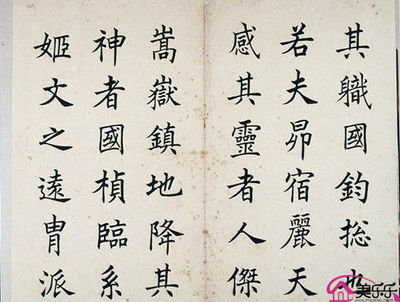 其職國鈞総也
若夫昴宿麗天
感其靈者人傑
嵩嶽鎮地降其
神者國楨臨系
姬文之遠胄派
美乐乐